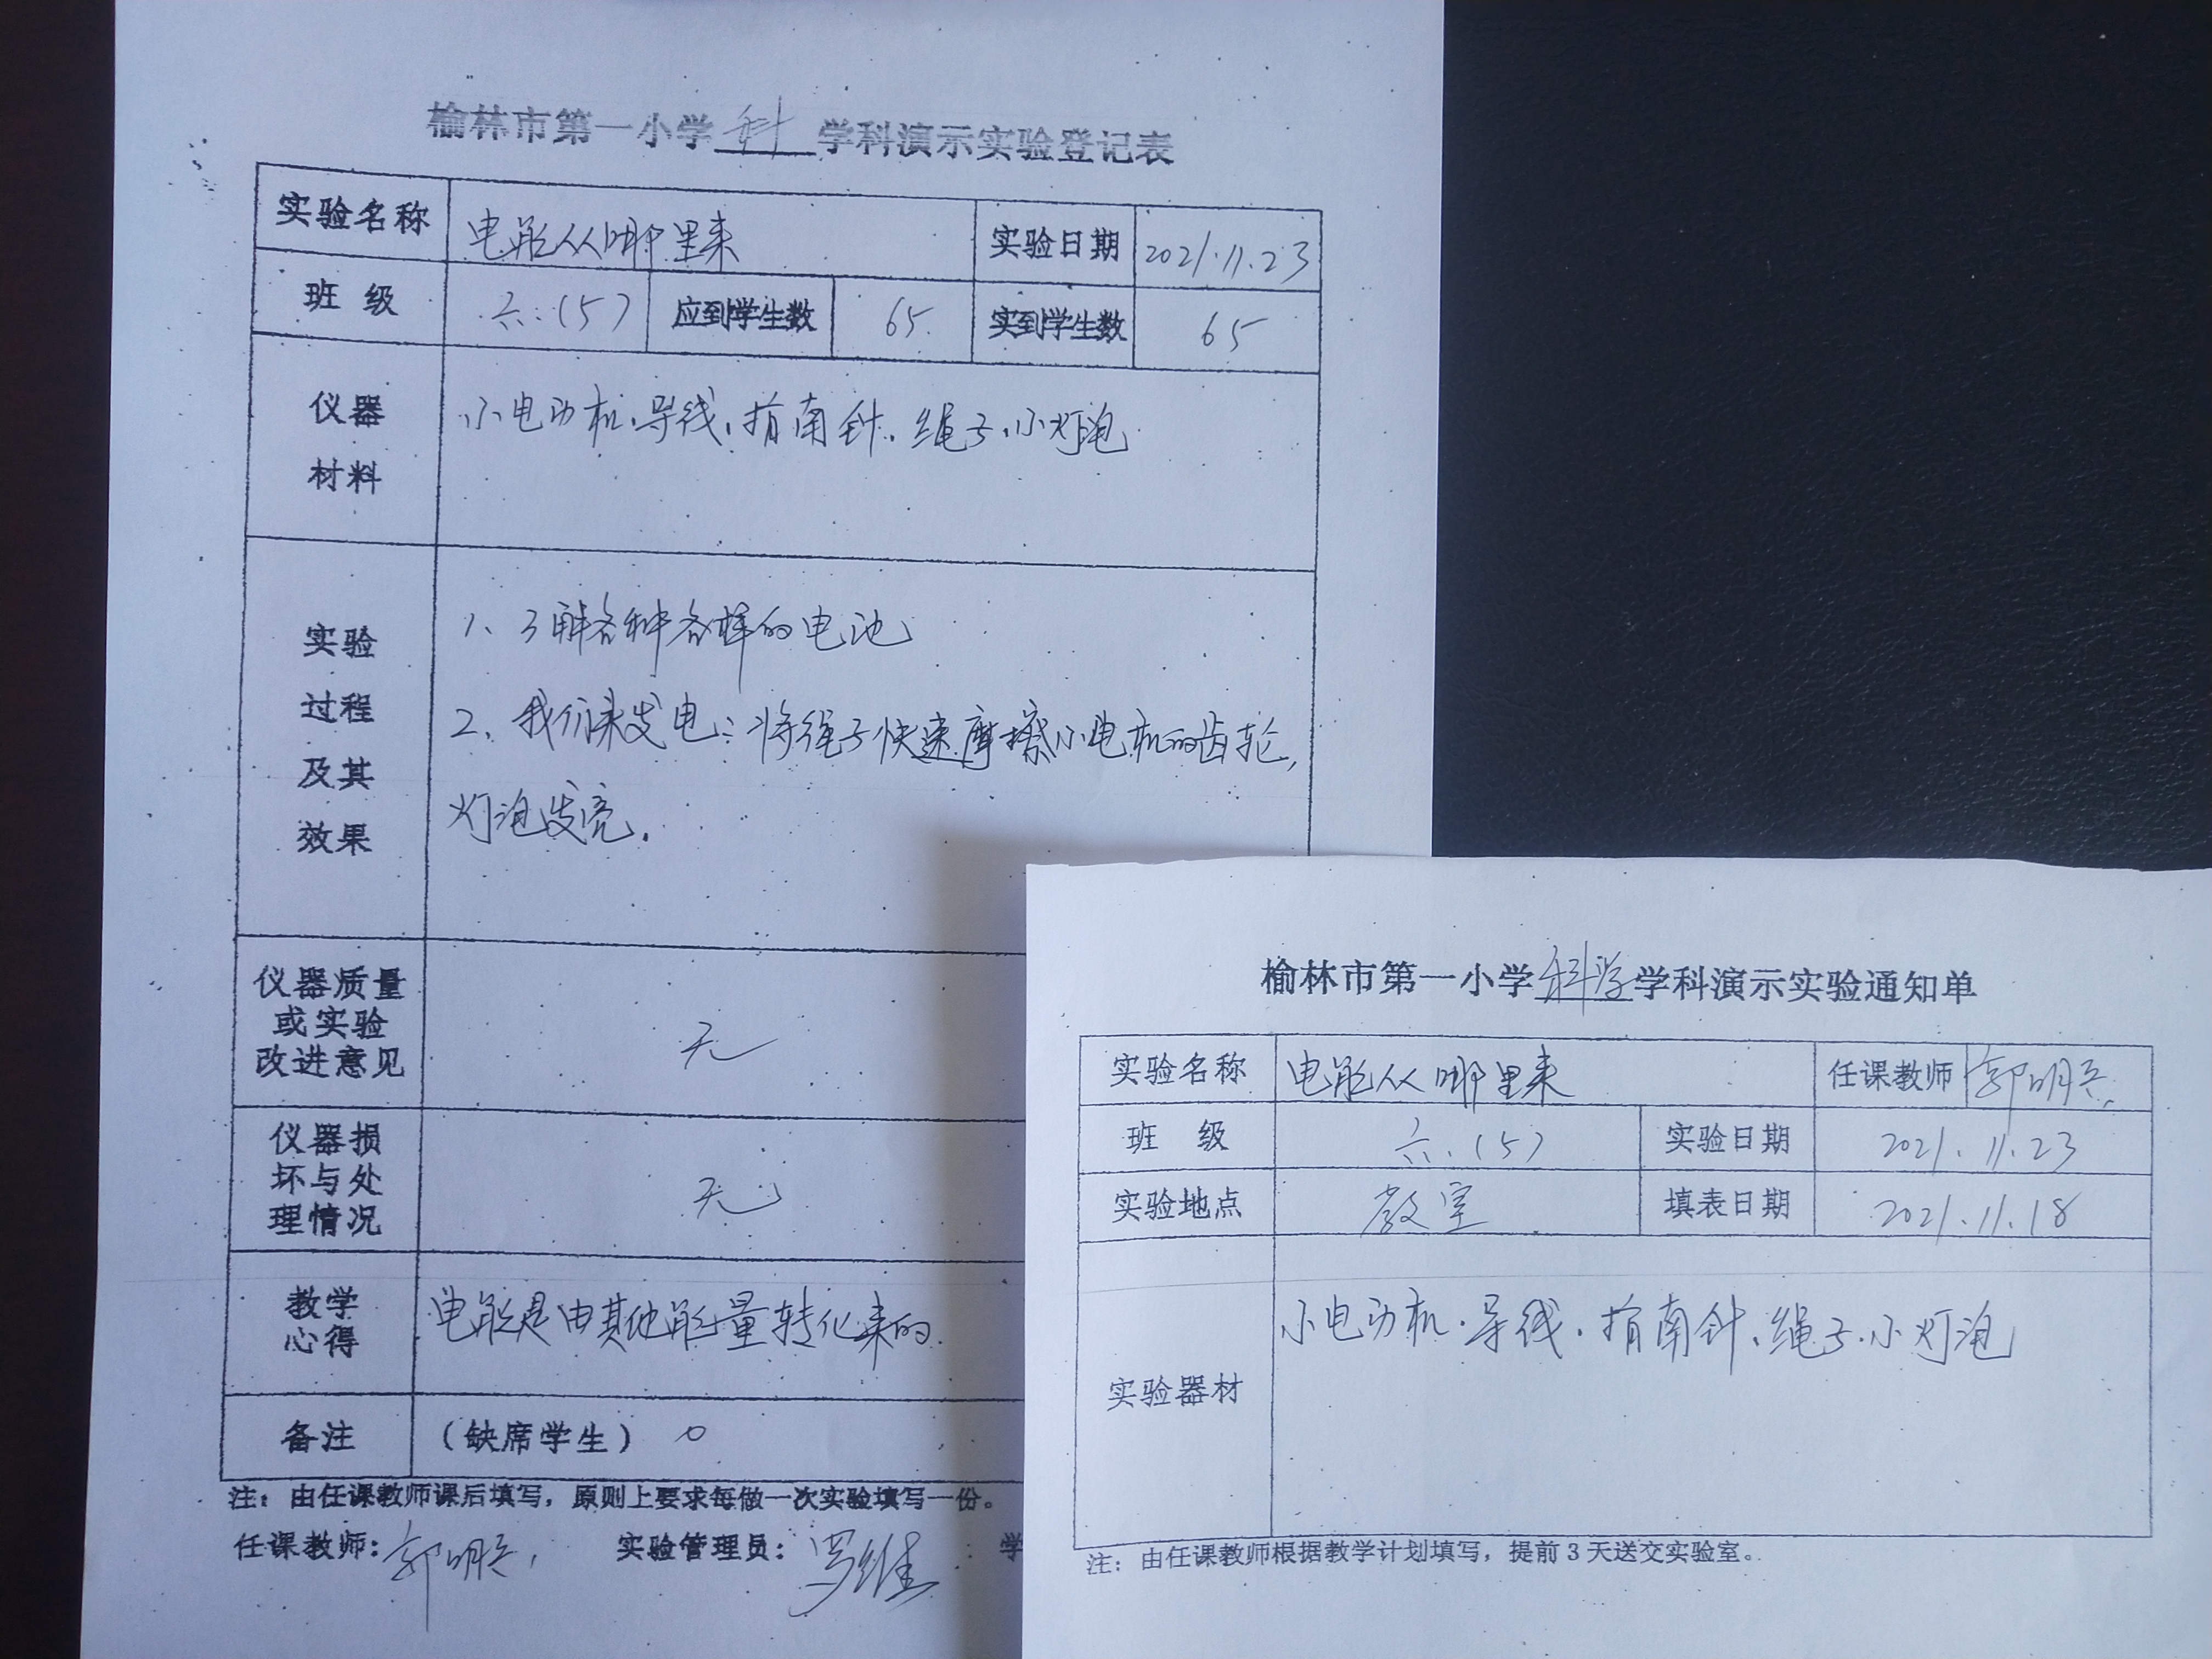 榆林市第一小学 科 学科演示实验登记表
实验名称 电能从哪里来 实验日期 2021.11.23
班 级 六.(5) 应到学生数 65 实到学生数 65
仪器
材料
小电动机、导线、指南针、绳子、小灯泡
实验
过程
及其
效果
1、了解各种各样的电池
2、我们来发电:将绳子快速摩擦小电机的齿轮,
灯泡发亮.
仪器质量
或实验
改进意见
无
仪器损
坏与处
理情况
无
教学
心得
电能是由其他能量转化来的.
备注 (缺席学生) 0
注:由任课教师课后填写,原则上要求每做一次实验填写一份。
任课教师: 实验管理员: 罗维 学
榆林市第一小学科学学科演示实验通知单
实验名称 电能从哪里来 任课教师
班 级 六.(5) 实验日期 2021.11.23
实验地点 教室 填表日期 2021.11.18
实验器材 小电动机、导线、指南针、绳子、小灯泡
注:由任课教师根据教学计划填写,提前3天送交实验室。